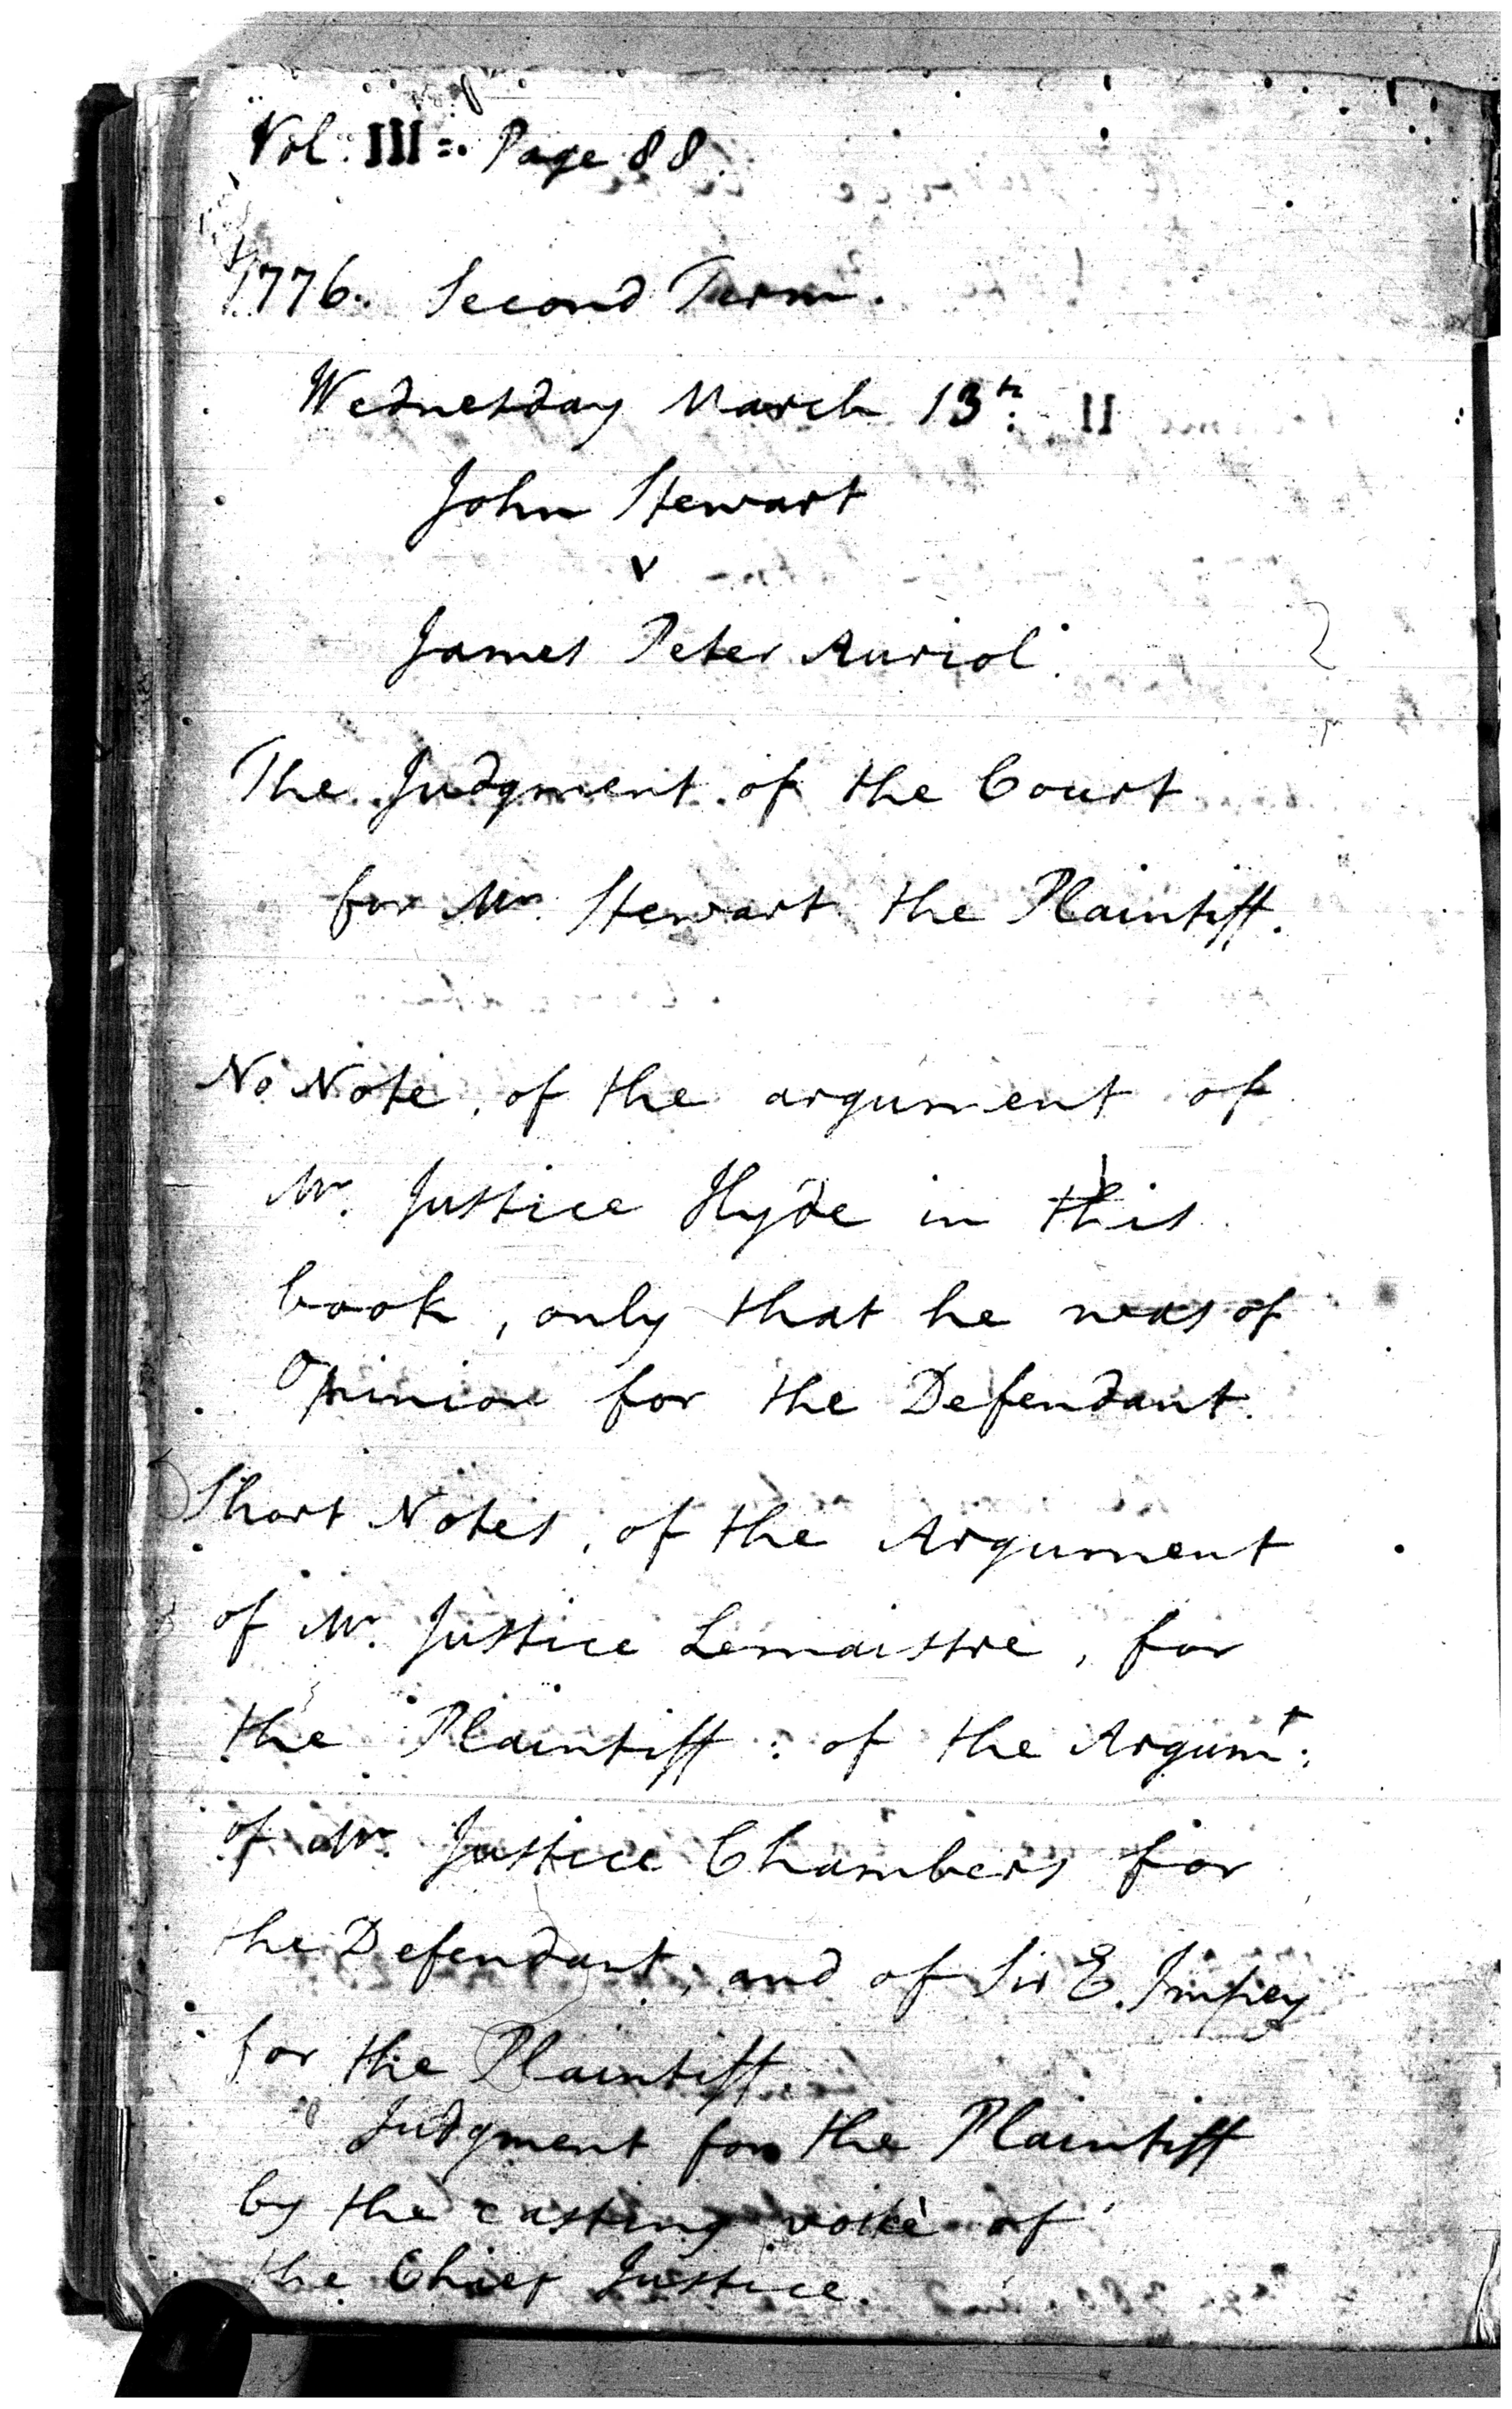 Vol. III =. Page 88.
1776. Second Term.
Wednesday March 13th.
John Stewart
v
James Peter Auriol.
The Judgment of the Court
for Mr. Stewart the Plaintiff.
No Note, of the argument of
Mr. Justice Hyde in this
book, only that he was of
Opinion for the Defendant.
Short Notes, of the Argument
of Mr. Justice Lemaistre, for
the Plaintiff: of the Argumt.
of Mr. Justice Chambers for
the Defendant, and of Sir E. Impey
for the Plaintiff.
Judgment for the Plaintiff
by the casting voice of
the Chief Justice.